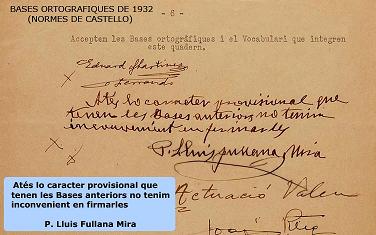 BASES ORTOGRAFIQUES DE 1932
(NORMES DE CASTELLO)
- 6 -
Accepten les Bases ortogràfiques i el Vocabulari que integren
este quadern.
Eduard Martínez
Ferrando
Atés lo caracter provisional que
tenen les Bases anteriors no tenim
inconvenient en firmarles
P. Lluis Fullana Mira
Actuació Valen
Joan
Atés lo caracter provisional que
tenen les Bases anteriors no tenim
inconvenient en firmarles
P. Lluis Fullana Mira